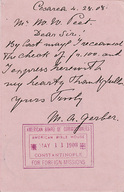 Cesarea 4.28.08.
Mr. W. W. Peet.
Dear Sir:
By last mail I received
the check of £ 100 and
I express herewith
my hearty thanks for it.
Yours truly
M. A. Gerber.
AMERICAN BOARD OF COMMISSIONERS
MAY 11 1908
CONSTANTINOPLE
FOR FOREIGN MISSIONS